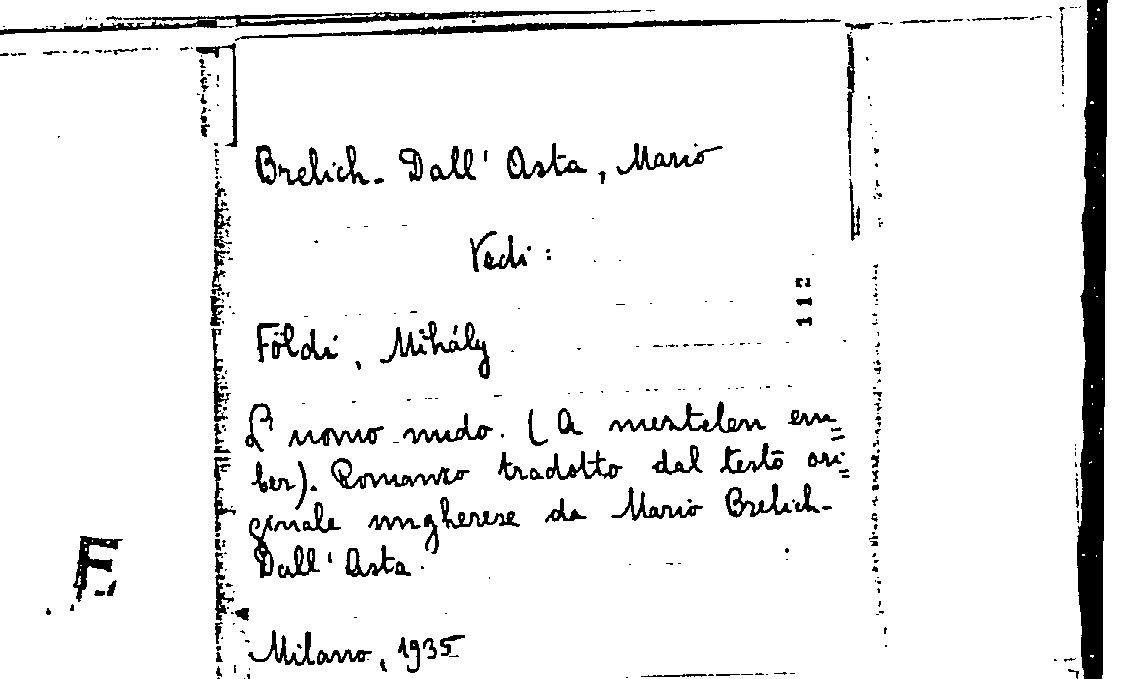 Brelich-Dall'Asta, Mario
Vedi:
112
Földi, Mihály
L'uomo nudo. (A meztelen em=
ber). Romanzo tradotto dal testo ori=
ginale ungherese da Mario Brelich-
Dall'Asta.
E
Milano, 1935